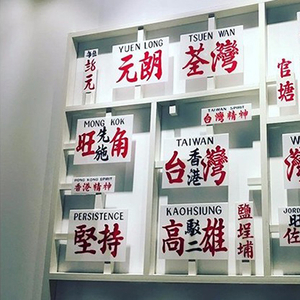 每位
彭元
YUEN LONG
元朗
TSUEN WAN
荃灣
官塘
MONG KOK
旺角
先施
TAIWAN SPIRIT
台灣精神
TAIWAN
台灣
香港
HONG KONG SPIRIT
香港精神
PERSISTENCE
堅持
KAOHSIUNG
高雄
駁二
鹽埕埔
W
灣
JORD
旺
佐